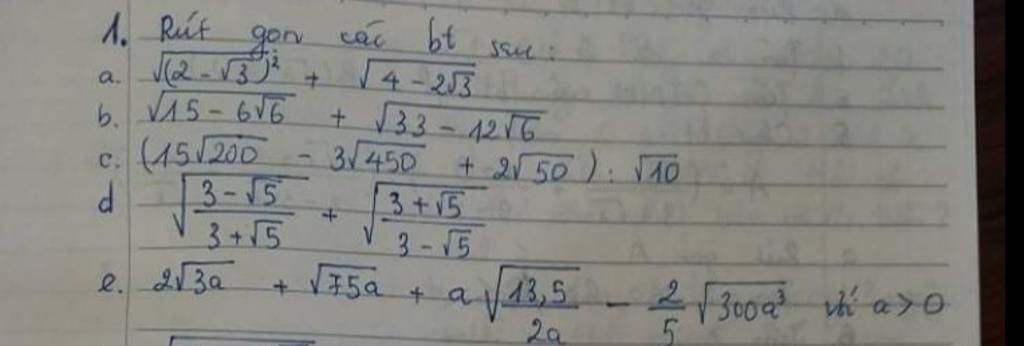 1. Rút gọn các bt sau:
a. √(2 - √3)² + √4 - 2√3
b. √15 - 6√6 + √33 - 12√6
c. (15√200 - 3√450 + 2√50) : √10
d √(3 - √5)/(3 + √5) + √(3 + √5)/(3 - √5)
e. 2√3a + √75a + a√13,5/2a - 2/5 √300a³ với a > 0